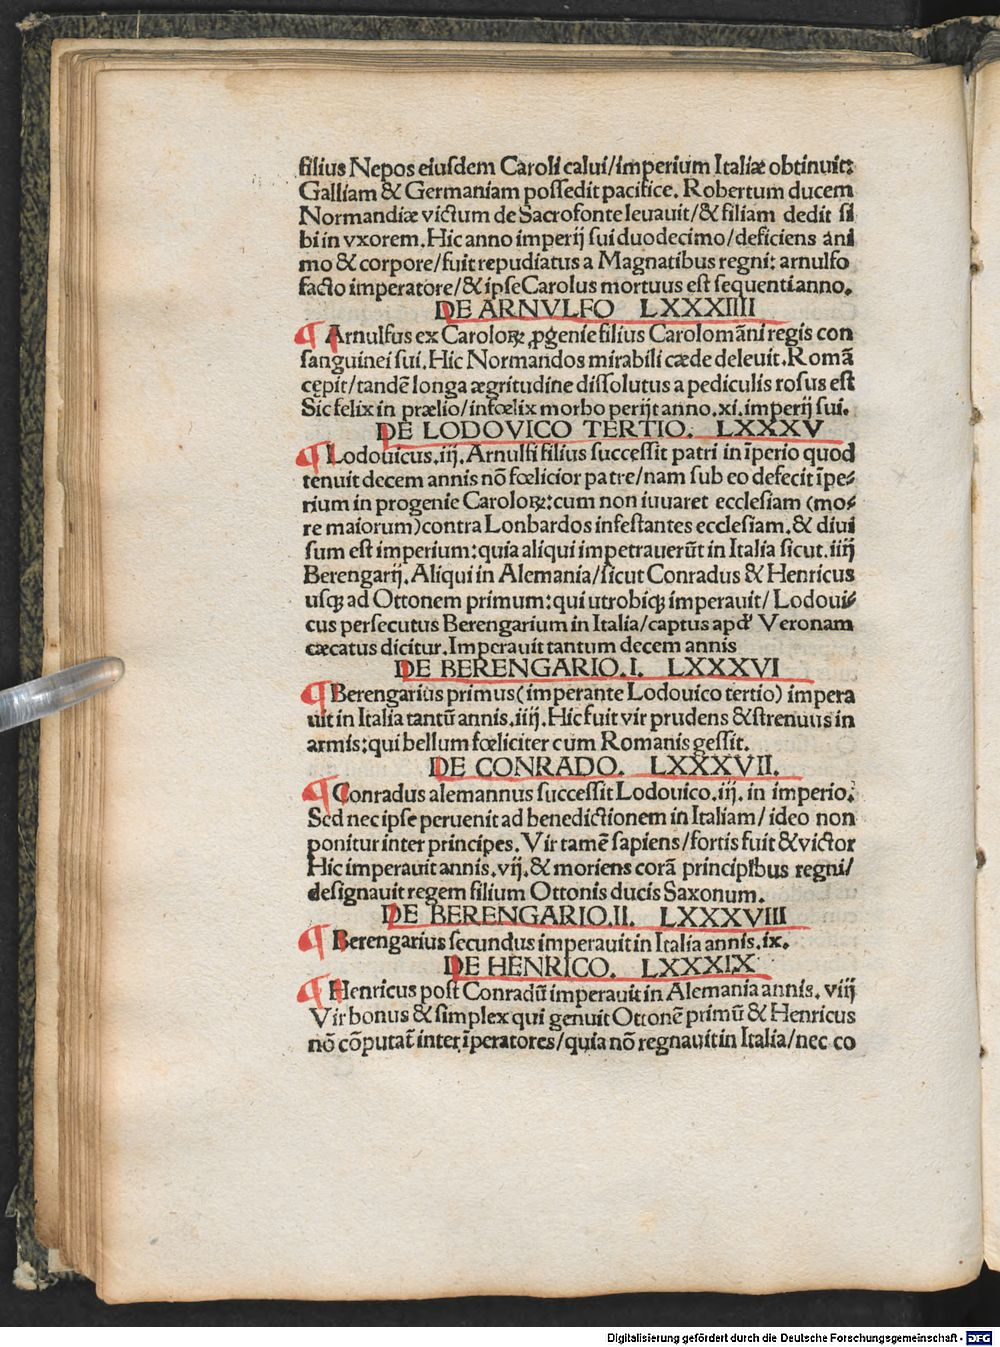 filius Nepos eiuſdem Caroli calui/imperium Italiæ obtinuit:
Galliam & Germaniam poſſedit pacifice. Robertum ducem
Normandiæ victum de Sacrofonte leuauit/& filiam dedit ſi
bi in vxorem. Hic anno imperij ſui duodecimo/deficiens ani
mo & corpore/fuit repudiatus a Magnatibus regni: arnulfo
facto imperatore/& ipſe Carolus mortuus eſt ſequenti anno.
DE ARNVLFO LXXXIIII
¶ Arnulfus ex Caroloꝝ ꝓgenie filius Carolomāni regis con
ſanguinei ſui. Hic Normandos mirabili cæde deleuit. Romā
cępit/tandē longa ægritudine diſſolutus a pediculis roſus eſt
Sic felix in prælio/infœlix morbo perijt anno. xi. imperij ſui.
DE LODOVICO TERTIO. LXXXV
¶ Lodouicus. iij. Arnulfi filius ſucceſſit patri in īperio quod
tenuit decem annis nō fœlicior patre/nam ſub eo defecit īpe⸗
rium in progenie Caroloꝝ: cum non iuuaret eccleſiam (mo⸗
re maiorum) contra Lonbardos infeſtantes eccleſiam. & diui
ſum eſt imperium: quia aliqui impetrauerūt in Italia ſicut. iiij
Berengarij. Aliqui in Alemania/ſicut Conradus & Henricus
uſꝗ ad Ottonem primum: qui utrobiꝗ imperauit/ Lodoui⸗
cus perſecutus Berengarium in Italia/captus apd' Veronam
cæcatus dicitur. Imperauit tantum decem annis
DE BERENGARIO. I. LXXXVI
¶ Berengarius primus (imperante Lodouico tertio) impera
uit in Italia tantū annis. iiij. Hic fuit vir prudens & ſtrenuus in
armis: qui bellum fœliciter cum Romanis geſſit.
DE CONRADO. LXXXVII.
¶ Conradus alemannus ſucceſſit Lodouico. iij. in imperio.
Sed nec ipſe peruenit ad benedictionem in Italiam/ ideo non
ponitur inter principes. Vir tamē ſapiens/fortis fuit & victor
Hic imperauit annis. vij. & moriens corā principibus regni/
deſignauit regem filium Ottonis ducis Saxonum.
DE BERENGARIO. II. LXXXVIII
¶ Berengarius ſecundus imperauit in Italia annis. ix.
DE HENRICO. LXXXIX
¶ Henricus poſt Conradū imperauit in Alemania annis. viij
Vir bonus & ſimplex qui genuit Ottonē primū & Henricus
nō cōputat̄ inter īperatores/quia nō regnauit in Italia/nec co
Digitalisierung gefördert durch die Deutsche Forschungsgemeinschaft - DFG